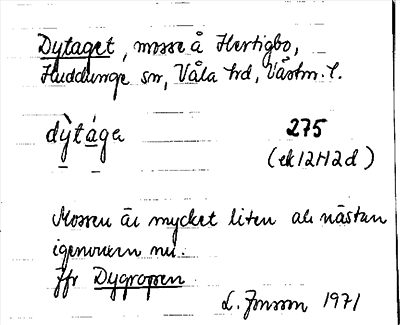 Dytaget, mosse å Hertigbo,
Huddunge sn, Våla hd, Västm. l.
dỳtága 275
(ek 12H2d)
Mossen är mycket liten och nästan
igenvuxen nu.
Jfr Dygropen
L. Jonsson 1971